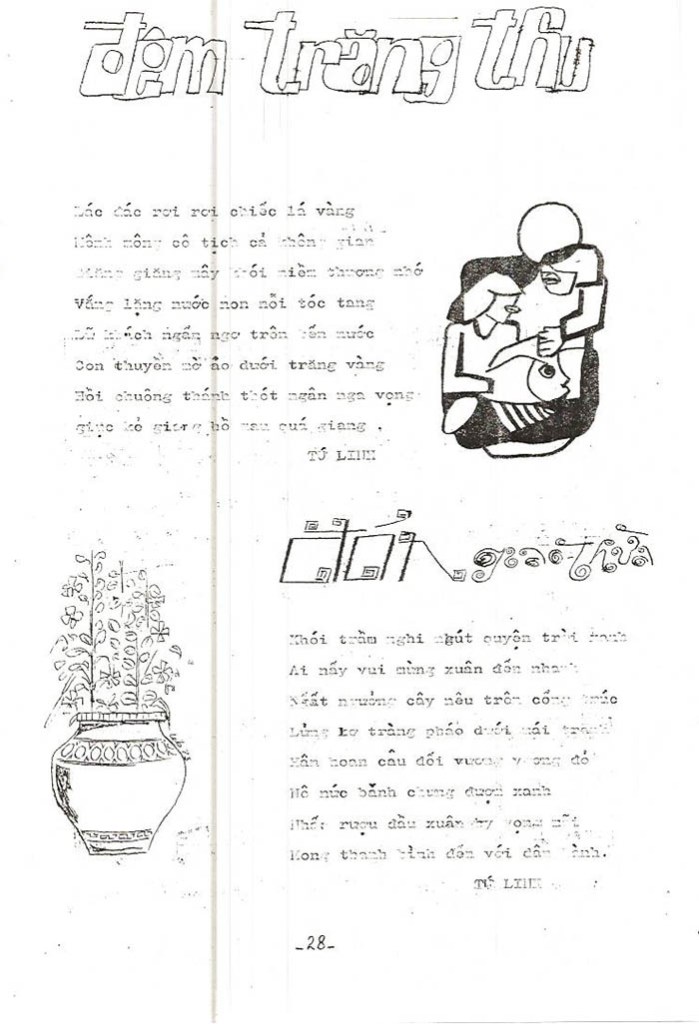 đêm trăng thu
Lác đác rơi rơi chiếc lá vàng
Mênh mông cô tịch cả không gian
giăng mây khói niềm thương nhớ
Vắng lặng nước non nỗi tóc tang
Lữ khách ngẩn ngơ trên bến nước
Con thuyền mờ ảo dưới trăng vàng
Hồi chuông thánh thót ngân nga vọng
giục kẻ giang hồ mau quá giang .
TÚ LINH
đón giao thừa
Khói trầm nghi ngút quyện trời xanh
Ai nấy vui mừng xuân đến nhanh
Ngất ngưởng cây nêu trên cổng trúc
Lửng lơ tràng pháo dưới mái tranh
Hân hoan câu đối vương vương đỏ
Nô nức bánh chưng đượm xanh
Nhấc rượu đầu xuân hy vọng mãi
Mong thanh bình đến với dân lành.
TÚ LINH
-28-